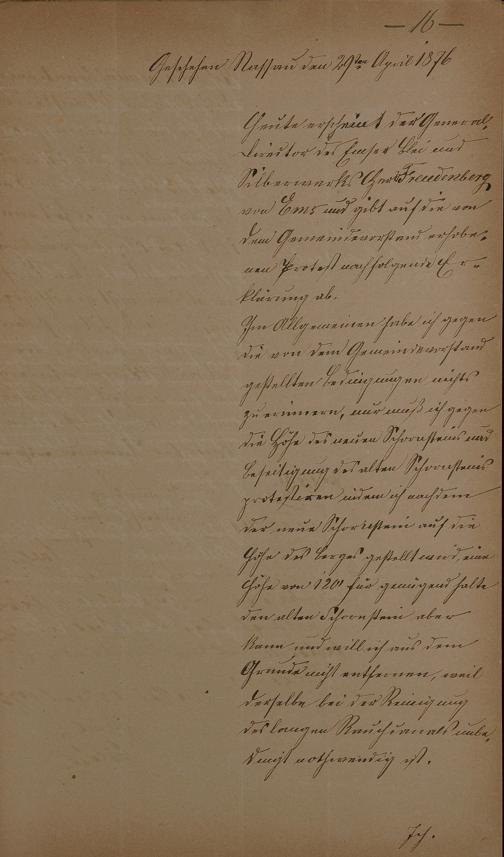 — 16 —
Geschehen Nassau den 29ten April 1876
Heute erscheint der General-
director des Emser Blei und
Silberwerks Herr Freudenberg
von Ems und gibt auf die von
dem Gemeindevorstand erhobe-
nen Protest nachfolgende Er-
klärung ab.
Im Allgemeinen habe ich gegen
die von dem Gemeindevorstand
gestellten Bedingungen nichts
zu erinnern, nur muß ich gegen
die Höhe des neuen Schornsteins und
Beseitigung des alten Schornsteins
protestiren indem ich nachdem
der neue Schornstein auf die
Höhe des Berges gestellt wird, eine
Höhe von 120' für genügend halte
den alten Schornstein aber
kann und will ich aus dem
Grunde nicht entfernen, weil
derselbe bei der Reinigung
des langen Rauchcanals unbe-
dingt nothwendig ist.
Ich.